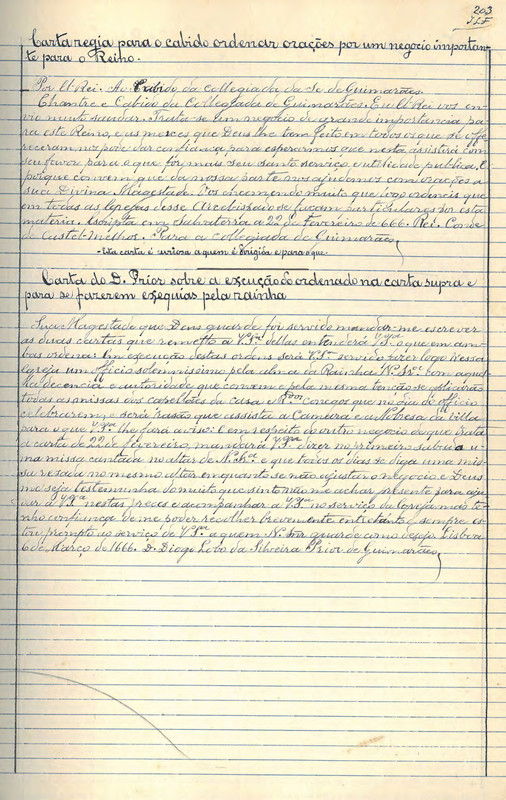 203
J.L.F
Carta regia para o cabido ordenar orações por um negocio importan-
te para o Reino.
Por El-Rei. Ao Cabido da Collegiada da Se de Guimarães.
Chantre e Cabido da Collegiada de Guimarães. Eu El-Rei vos en-
vio muito saudar. Trata-se um negocio de grande importancia pa-
ra este Reino, e as merces que Deus lhe tem feito em todos os que se offe-
receram nos pode dar confiança para esperarmos que nesta assistirá com
seu favor para o que fôr mais seu santo serviço e utilidade publica. E
porque convem que da nossa parte nos ajudemos com orações a
sua Divina Magestade. Vos encomendo muito que logo ordeneis que
em todas as Igrejas desse Arcebispado se façam particulares por esta
materia. Escripta em Salvaterra a 22 de Fevereiro de 666. Rei. Conde
de Castel-Melhor. Para a Collegiada de Guimarães.
- Esta carta é curiosa a quem é dirigida e para o que.
Carta do D. Prior sobre a execução do ordenado na carta supra e
para se fazerem exequias pela rainha
Sua Magestade que Deus guarde foi servido mandar-me escrever
as duas cartas que remetto a V.Sª. dellas entenderá V.Sª. o que em am-
bas ordena: Em execução destas ordens será V.Sª. servido fazer logo n'essa
Igreja um officio solemnissimo pela alma da Rainha N. Srª. com aquel-
la decencia e autoridade que convem e pela mesma tenção se applicarão
todas as missas dos capellães da casa e Rdos. conegos que no dia do officio
celebrarem e será rasão que assista a Camara e a Nobresa da villa
para o que V.Sª. lhe fará aviso: E em respeito do outro negocio de que trata
a carta de 22 de fevereiro, mandará V.Sª. dizer no primeiro sabado u-
ma missa cantada no altar de N. Srª. e que todos os dias se diga uma mis-
sa resada no mesmo altar em quanto se não ajustar o negocio e Deus
me seja testemunha do muito que sinto não me achar presente para aju-
dar a V.Sª. nestas preces e acompanhar a V.Sª. no serviço da Igreja mas te-
nho confiança de me poder recolher brevemente entretanto e sempre es-
tou prompto ao serviço de V.Sª. a quem N. Snr. guarde como desejo. Lisboa
6 de Março de 1666. D. Diogo Lobo da Silveira Prior de Guimarães